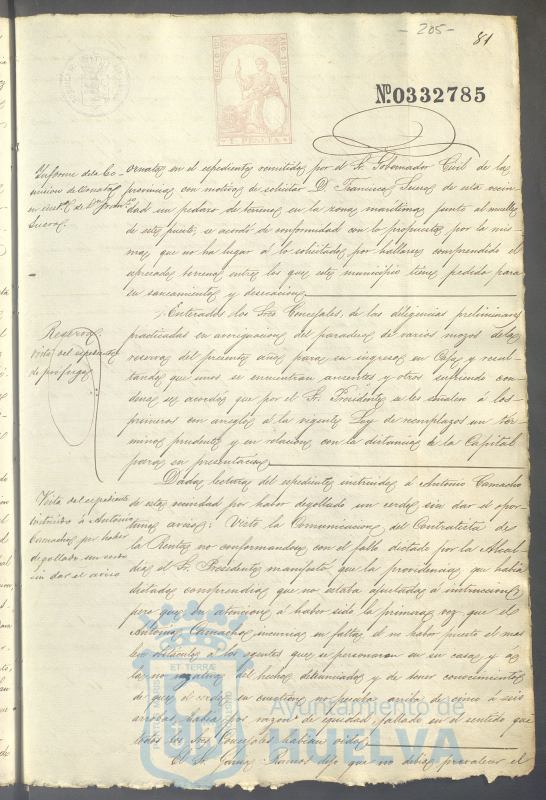 205
81
SELLO 10º AÑO 1883
1 PESETA
Nº 0332785
Informe de la Co-
mision de Ornato
Suero
Ornato, en el expediente remitido por el Sr. Gobernador Civil de la
provincia con motivo de solicitar D. Francisco Suero de esta vecin-
dad un pedazo de terreno en la zona maritima junto al muelle
de este puerto se acordó de conformidad con lo propuesto por la mis-
ma, que no ha lugar á lo solicitado por hallarse comprendido el
espresado terreno entre los que este municipio tiene pedido para
su saneamiento y desecacion
Reservas
vista del espediente
de profugos
Enterados los Sres Concejales, de las diligencias preliminares
practicadas en averiguacion del paradero de varios mozos de la
reserva del presente año para su ingreso en Caja y resul-
tando que unos se encuentran ausentes y otros sufriendo con-
dena se acordó que por el Sr. Presidente se les señalen á los
primeros con arreglo á la vigente Ley de reemplazos un tér-
mino prudente y en relacion con la distancia á la Capital
para su presentacion
Vista del espediente
instruido á Antonio
Camacho por haber
degollado un cerdo
sin dar el aviso
Dada lectura del espediente instruido á Antonio Camacho
de esta vecindad por haber degollado un cerdo sin dar el opor-
tuno aviso: Visto la Comunicacion del Contratista de
la Renta no conformandose con el fallo dictado por la Alcal-
dia el Sr. Presidente manifestó, que la providencia que habia
dictado comprendia que no estaba ajustada á instruccion
pero que en atencion á haber sido la primera vez que el
Antonio Camacho incurria en falta, el no haber puesto el mas
leve obstáculo á los agentes que se personaron en su casa y
la no negativa del hecho denunciado y de tener conocimiento
de que el cerdo en cuestion no pesaba arriba de cinco á seis
arrobas, habia por razon de equidad, fallado en el sentido que
todos los Sres Concejales habian oido
El Sr. Garcia Ramos dijo que no debia prevalecer el
ET TERRÆ
Ayuntamiento de
HUELVA